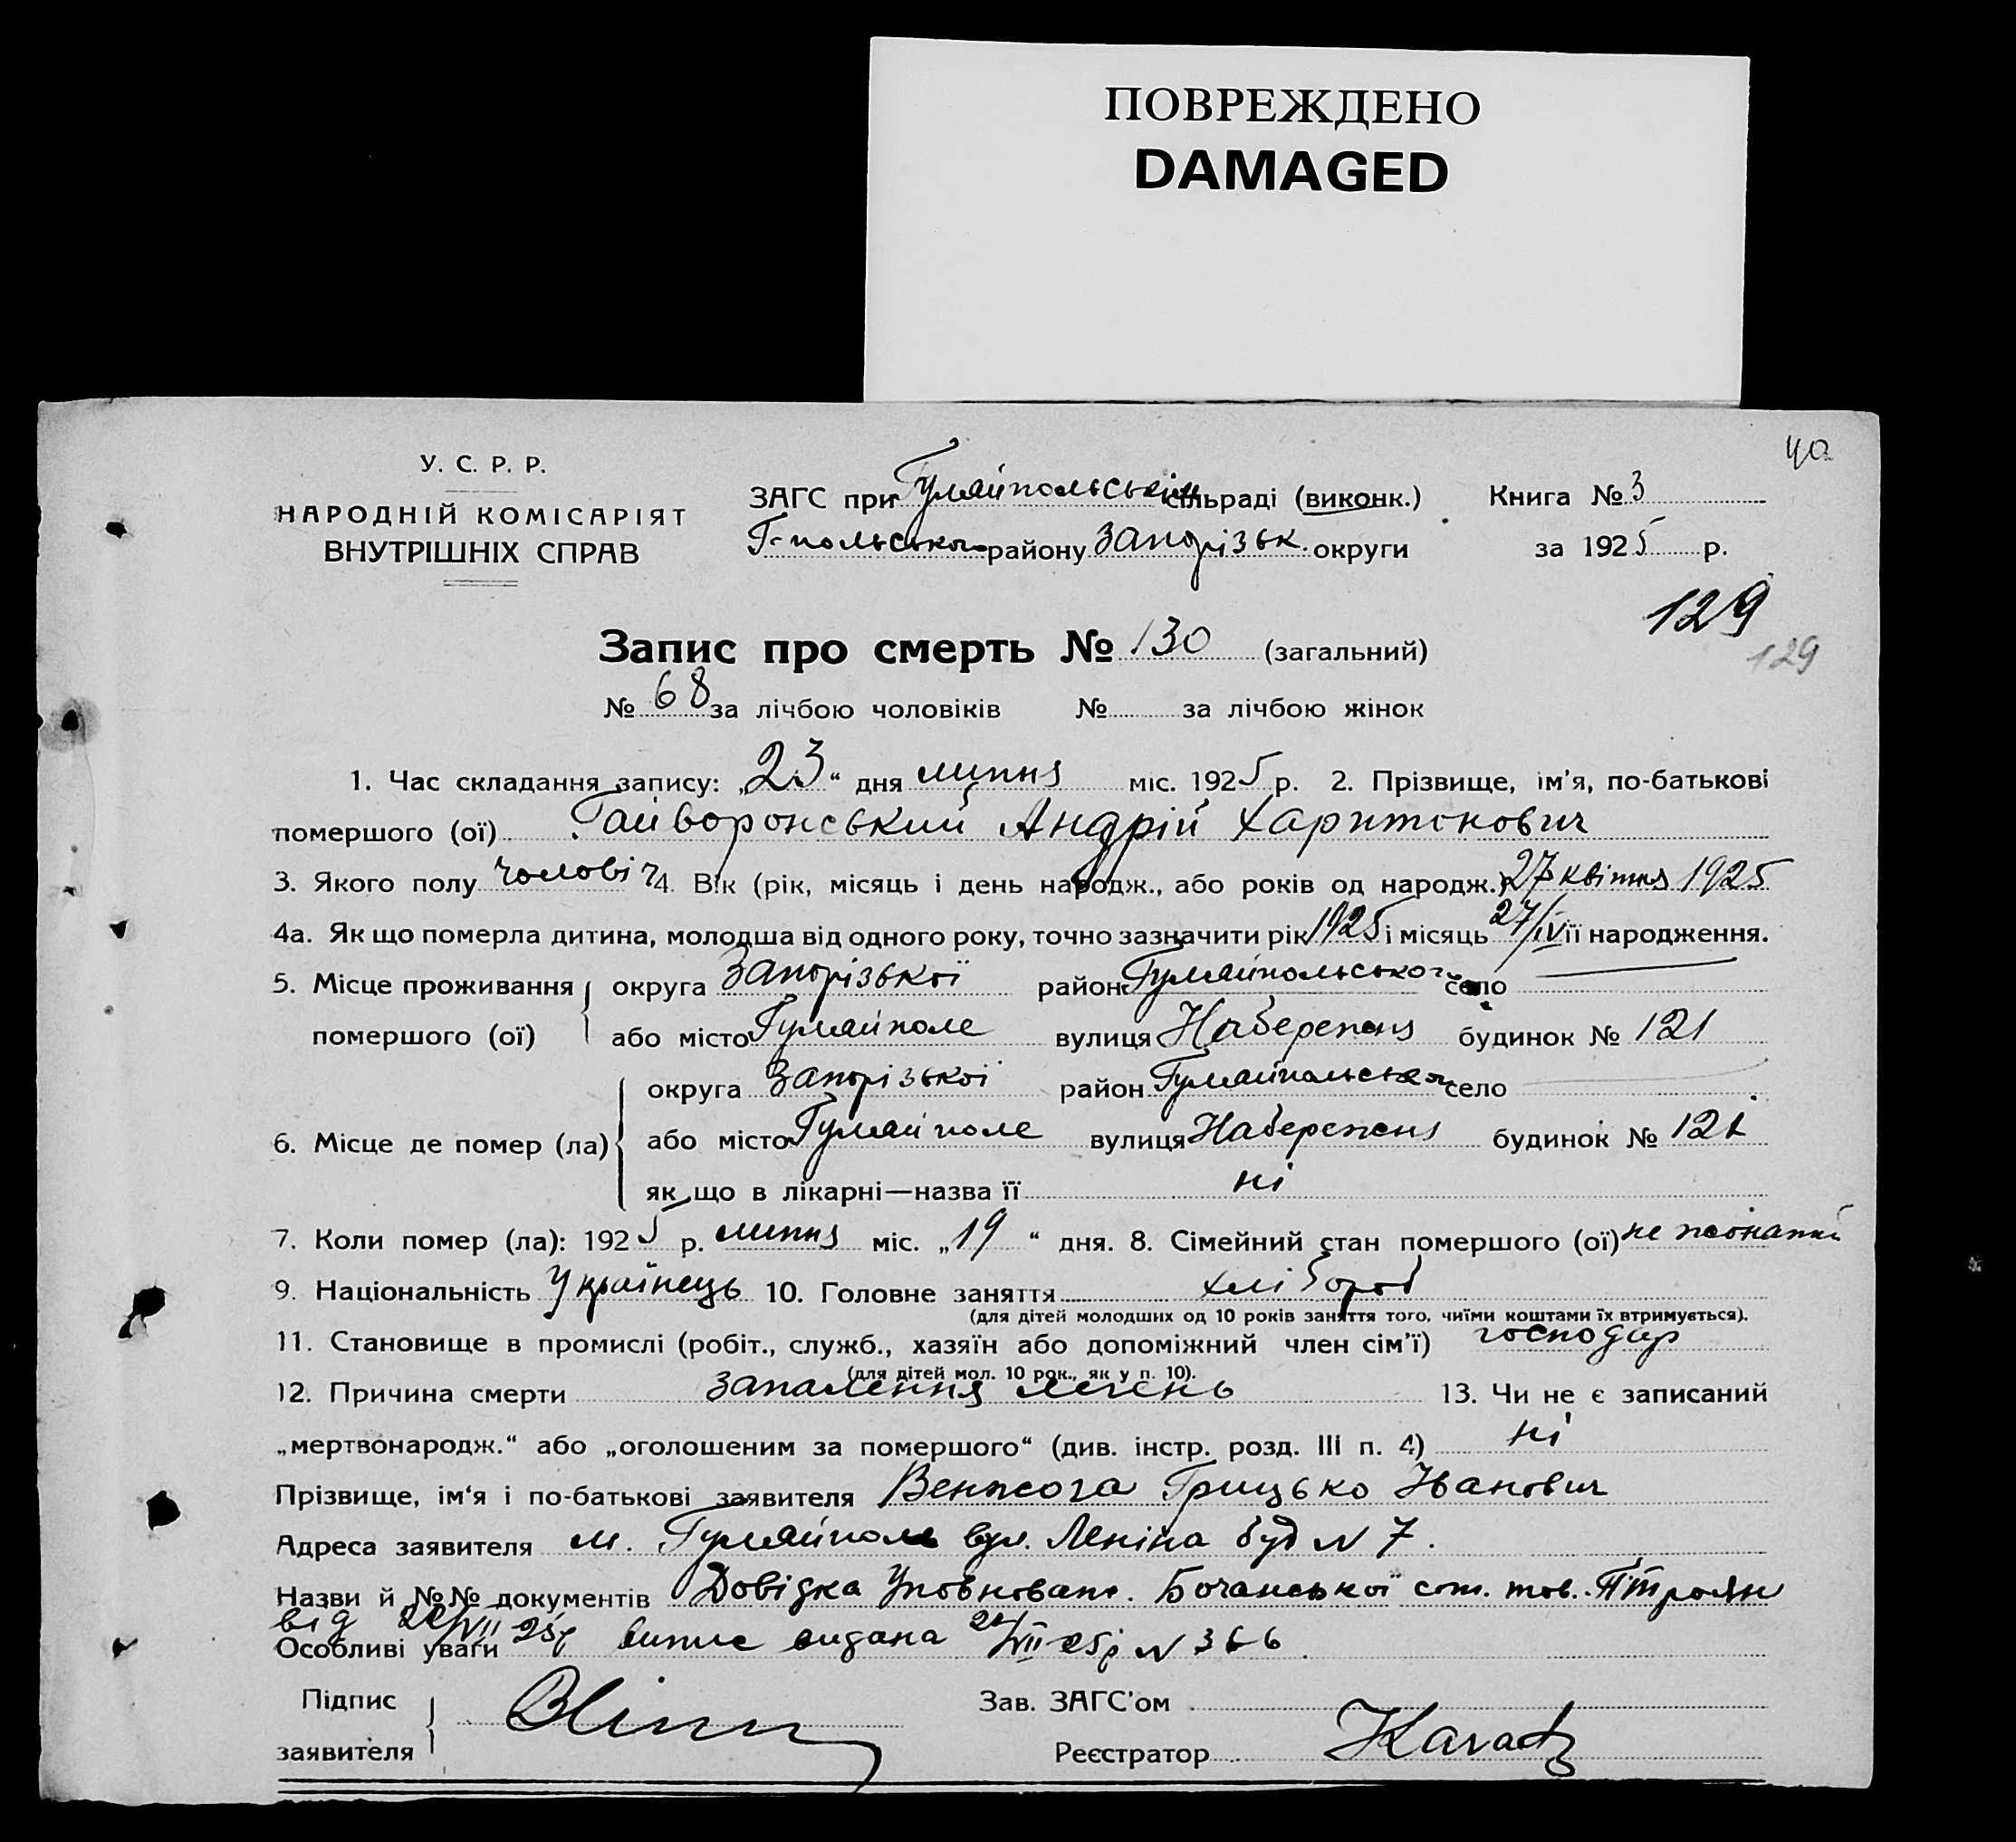 ПОВРЕЖДЕНО
DAMAGED
У. С. Р. Р.
НАРОДНІЙ КОМІСАРІЯТ
ВНУТРІШНІХ СПРАВ
ЗАГС при Гуляйпольськім сільраді (виконк.)
Г-польського району Запорізьк. округи
Книга № 3
за 1925 р.
129
129
Запис про смерть № 130 (загальний)
№ 68 за лічбою чоловіків № за лічбою жінок
1. Час складання запису: „23“ дня липня міс. 1925 р. 2. Прізвище, ім'я, по-батькові
помершого (ої) Гайворонський Андрій Харитонович
3. Якого полу чоловіч 4. Вік (рік, місяць і день народж., або років од народж.) 27 квітня 1925
4а. Як що померла дитина, молодша від одного року, точно зазначити рік 1925 і місяць 27/IV її народження.
5. Місце проживання помершого (ої) округа Запорізької район Гуляйпольського село
або місто Гуляйполе вулиця Набережня будинок № 121
6. Місце де помер (ла) округа Запорізької район Гуляйпольського село
або місто Гуляйполе вулиця Набережня будинок № 121
як що в лікарні—назва її ні
7. Коли помер (ла): 1925 р. липня міс. „19“ дня. 8. Сімейний стан помершого (ої) не жонатий
9. Національність Українець 10. Головне заняття хлібороб
(для дітей молодших од 10 років заняття того, чиїми коштами їх втримується).
11. Становище в промислі (робіт., служб., хазяїн або допоміжний член сім'ї) господар
(для дітей мол. 10 рок., як у п. 10).
12. Причина смерти запалення легень 13. Чи не є записаний
„мертвонародж.“ або „оголошеним за помершого“ (див. інстр. розд. III п. 4) ні
Прізвище, ім'я і по-батькові заявителя Венжога Грицько Іванович
Адреса заявителя м. Гуляйполе вул. Леніна буд N 7.
Назви й №№ документів Довідка Уповноваж. Бочанської сот. тов.
від 22/VII 25р
Особливі уваги випис видана VII 25р N 366.
Підпис заявителя
Зав. ЗАГС'ом
Реєстратор